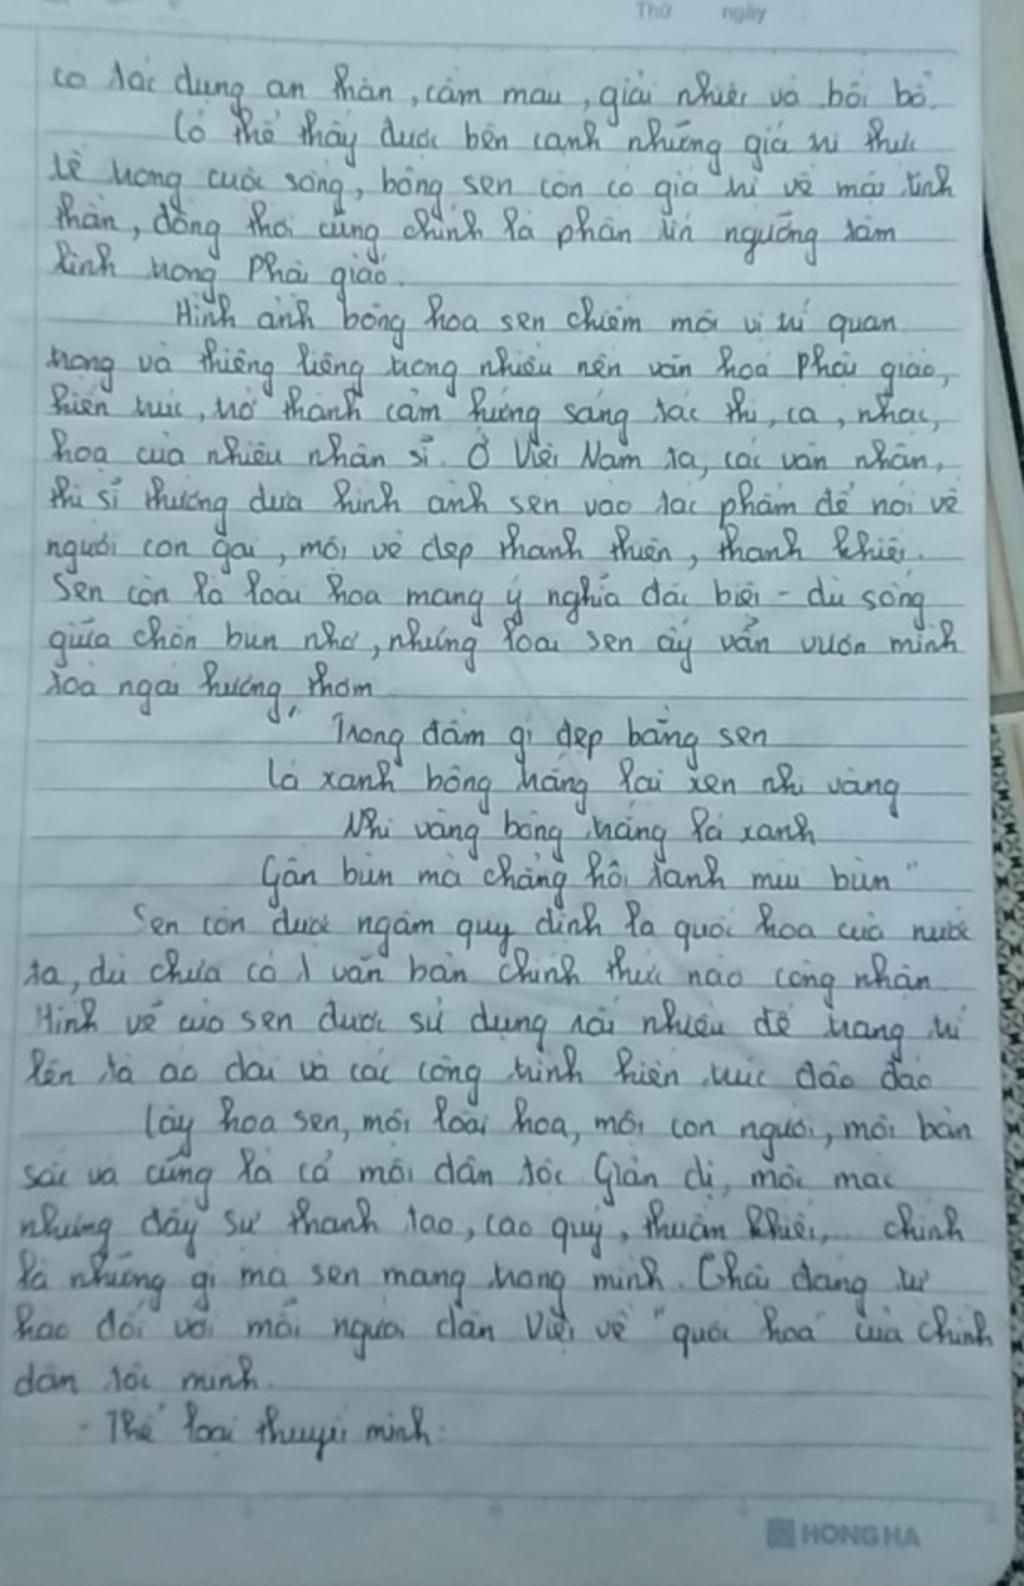 Thứ ngày
có tác dụng an thần, cầm máu, giải nhiệt và bồi bổ.
Có thể thấy được bên cạnh những giá trị thực
tế trong cuộc sống, bông sen còn có giá trị về mặt tinh
thần, đồng thời cũng chính là phần tín ngưỡng tâm
linh trong Phật giáo.
Hình ảnh bông hoa sen chiếm một vị trí quan
trọng và thiêng liêng trong nhiều nền văn hoá Phật giáo,
kiến trúc, trở thành cảm hứng sáng tác thi, ca, nhạc,
hoạ của nhiều nhân sĩ. Ở Việt Nam ta, các văn nhân,
thi sĩ thường đưa hình ảnh sen vào tác phẩm để nói về
người con gái, một vẻ đẹp thanh thiên, thanh khiết.
Sen còn là loài hoa mang ý nghĩa đặc biệt - dù sống
giữa chốn bùn nhơ, nhưng loài sen ấy vẫn vươn mình
toả ngát hương thơm
"Trong đầm gì đẹp bằng sen
Lá xanh bông trắng lại xen nhị vàng
Nhị vàng bông trắng lá xanh
Gần bùn mà chẳng hôi tanh mùi bùn"
Sen còn được ngầm quy định là quốc hoa của nước
ta, dù chưa có 1 văn bản chính thức nào công nhận
Hình vẽ của sen được sử dụng rất nhiều để trang trí
lên tà áo dài và các công trình kiến trúc độc đáo
Cây hoa sen, một loài hoa, một con người, một bản
sắc và cũng là cả một dân tộc Giản dị, mộc mạc
nhưng đầy sự thanh tao, cao quý, thuần khiết, chính
là những gì mà sen mang trong mình. Thật đáng tự
hào đối với mỗi người dân Việt về "quốc hoa" của chính
dân tộc mình.
- Thể loại thuyết minh.
HONG HA